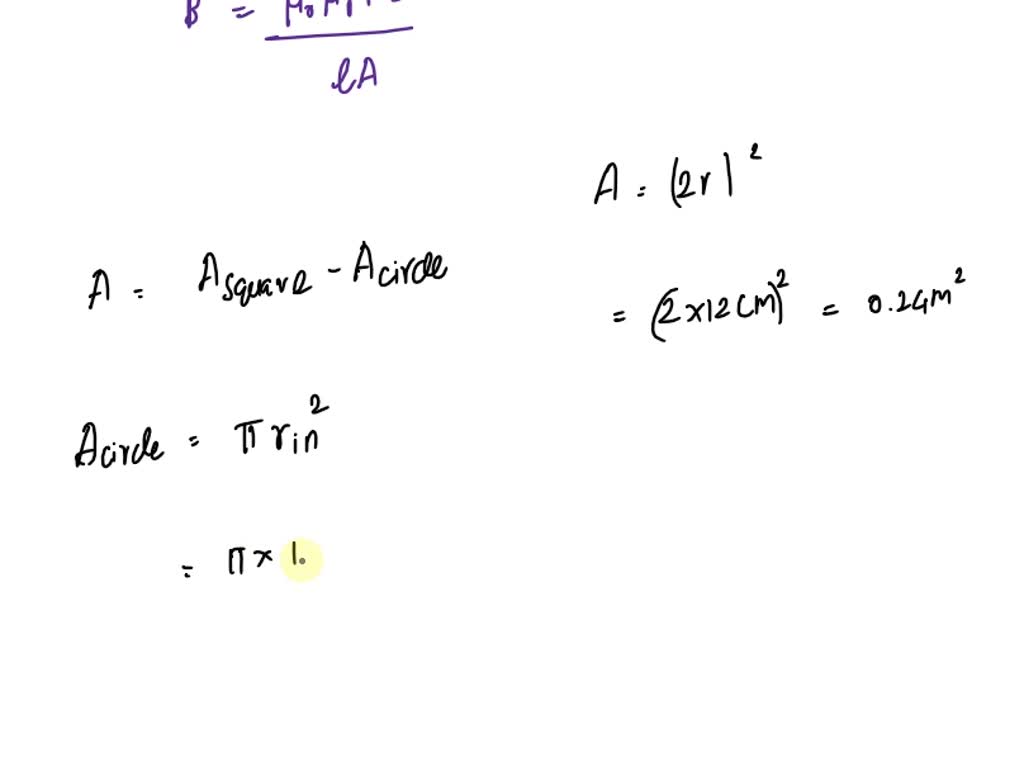 B =
lA
A = (2r)²
A = Asquare - Acircle
= (2×12 cm)² = 0.24m²
Acircle = π rin²
= π × 1.